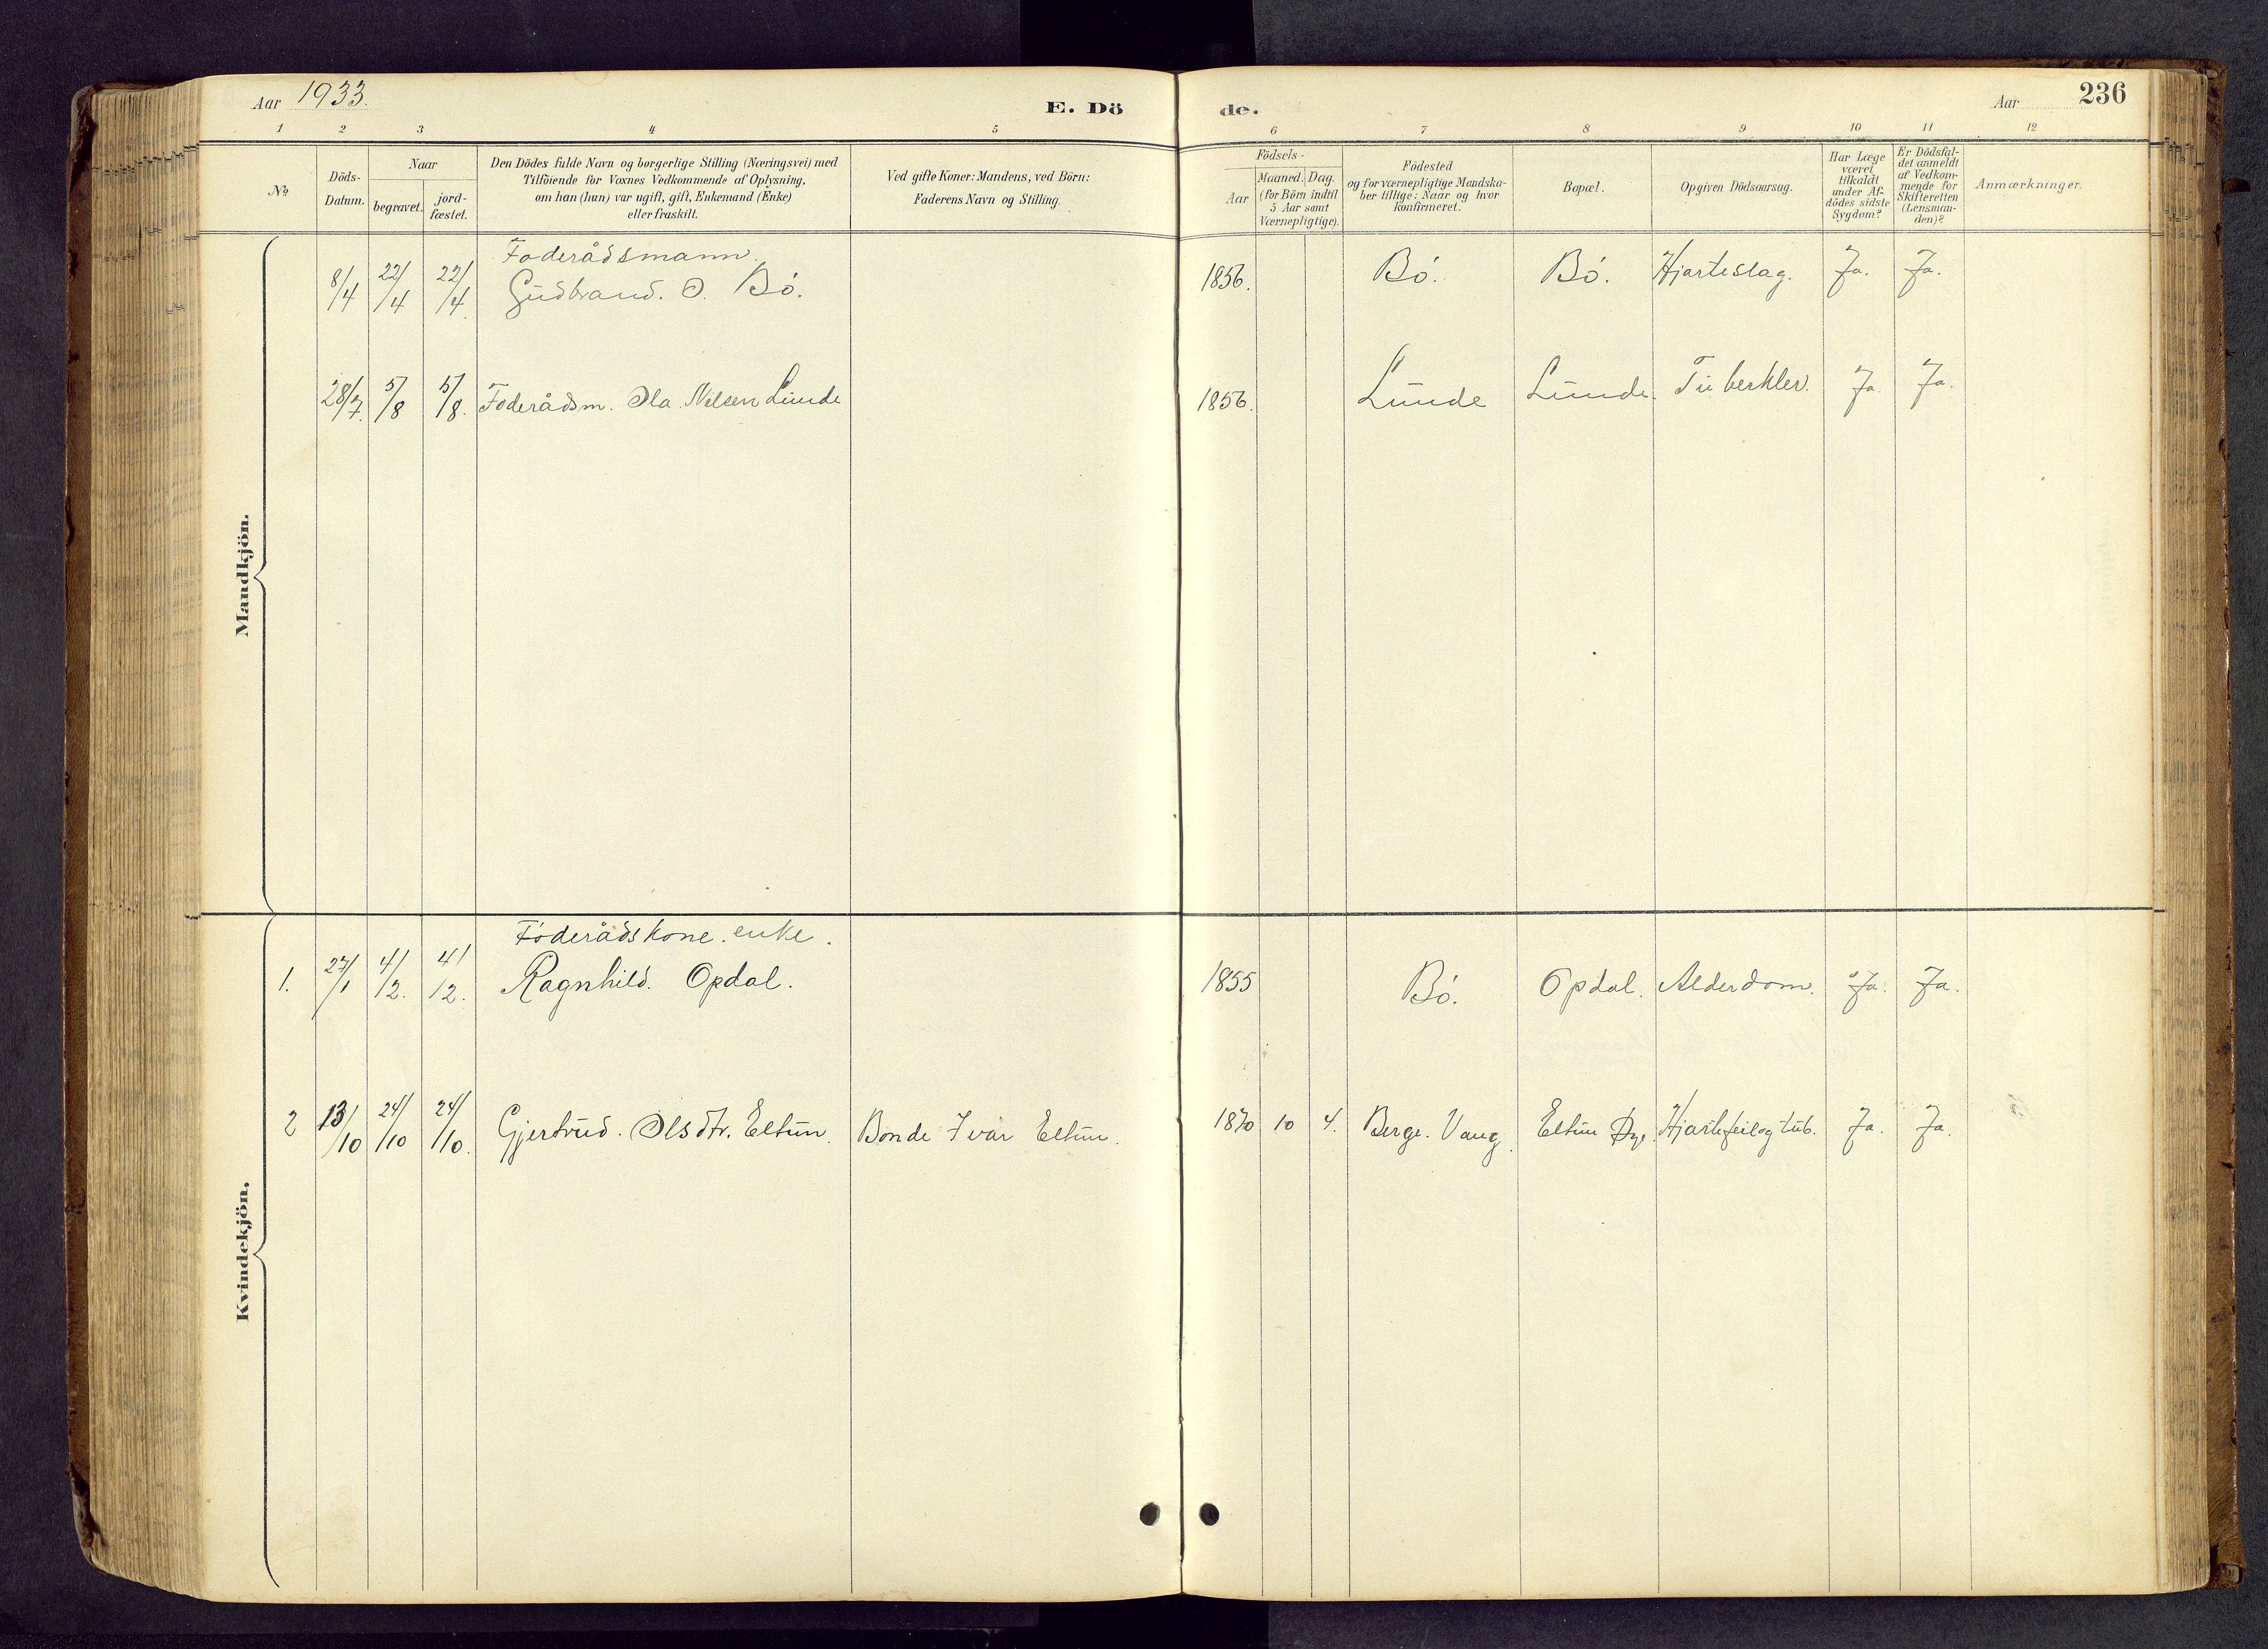 Aar 1933.
E. Dö
de.
Aar
236
1 2 3 4 5 6 7 8 9 10 11 12
No
Döds-
Datum.
Naar
begravet.
jord-
fæstet.
Den Dödes fulde Navn og borgerlige Stilling (Næringsvei) med
Tilföiende for Voxnes Vedkommende af Oplysning,
om han (hun) var ugift, gift, Enkemand (Enke)
eller fraskilt.
Ved gifte Koner: Mandens, ved Börn:
Faderens Navn og Stilling.
Födsels-
Aar
Maaned. Dag.
(for Börn indtil
5 Aar samt
Værnepligtige).
Födested
og for værnepligtige Mandska-
ber tillige: Naar og hvor
konfirmeret.
Bopæl.
Opgiven Dödsaarsag.
Har Læge
været
tilkaldt
under Af-
dödes sidste
Sygdom?
Er Dödsfal-
det anmeldt
af Vedkom-
mende for
Skifteretten
(Lensman-
den)?
Anmærkninger.
Mandkjön.
Foderådsmann.
8/4 22/4 22/4. Gudbrand. O. Bó. 1856. Bó. Bó. Hjarteslag. Ja. Ja.
28/7. 5/8 5/8. Foderådsm. Ola. Nilsen Lunde 1856. Lunde Lunde. Tuberklev. Ja. Ja.
Kvindekjön.
Fóderådskone. enke.
1. 27/1 4/2. 4/2. Ragnhild. Opdal. 1855 Bó. Opdal. Alderdom. Ja. Ja.
2 13/10 24/10 24/10. Gjertrud. Olsdtr. Eltun. Bonde Ivar Eltun. 1870 10 4. Berge. Vang. Eltun Hjartefeil og tub. Ja. Ja.